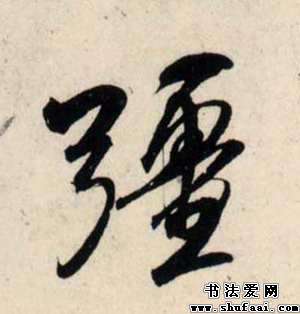 彊
书法爱网
www.shufaai.com